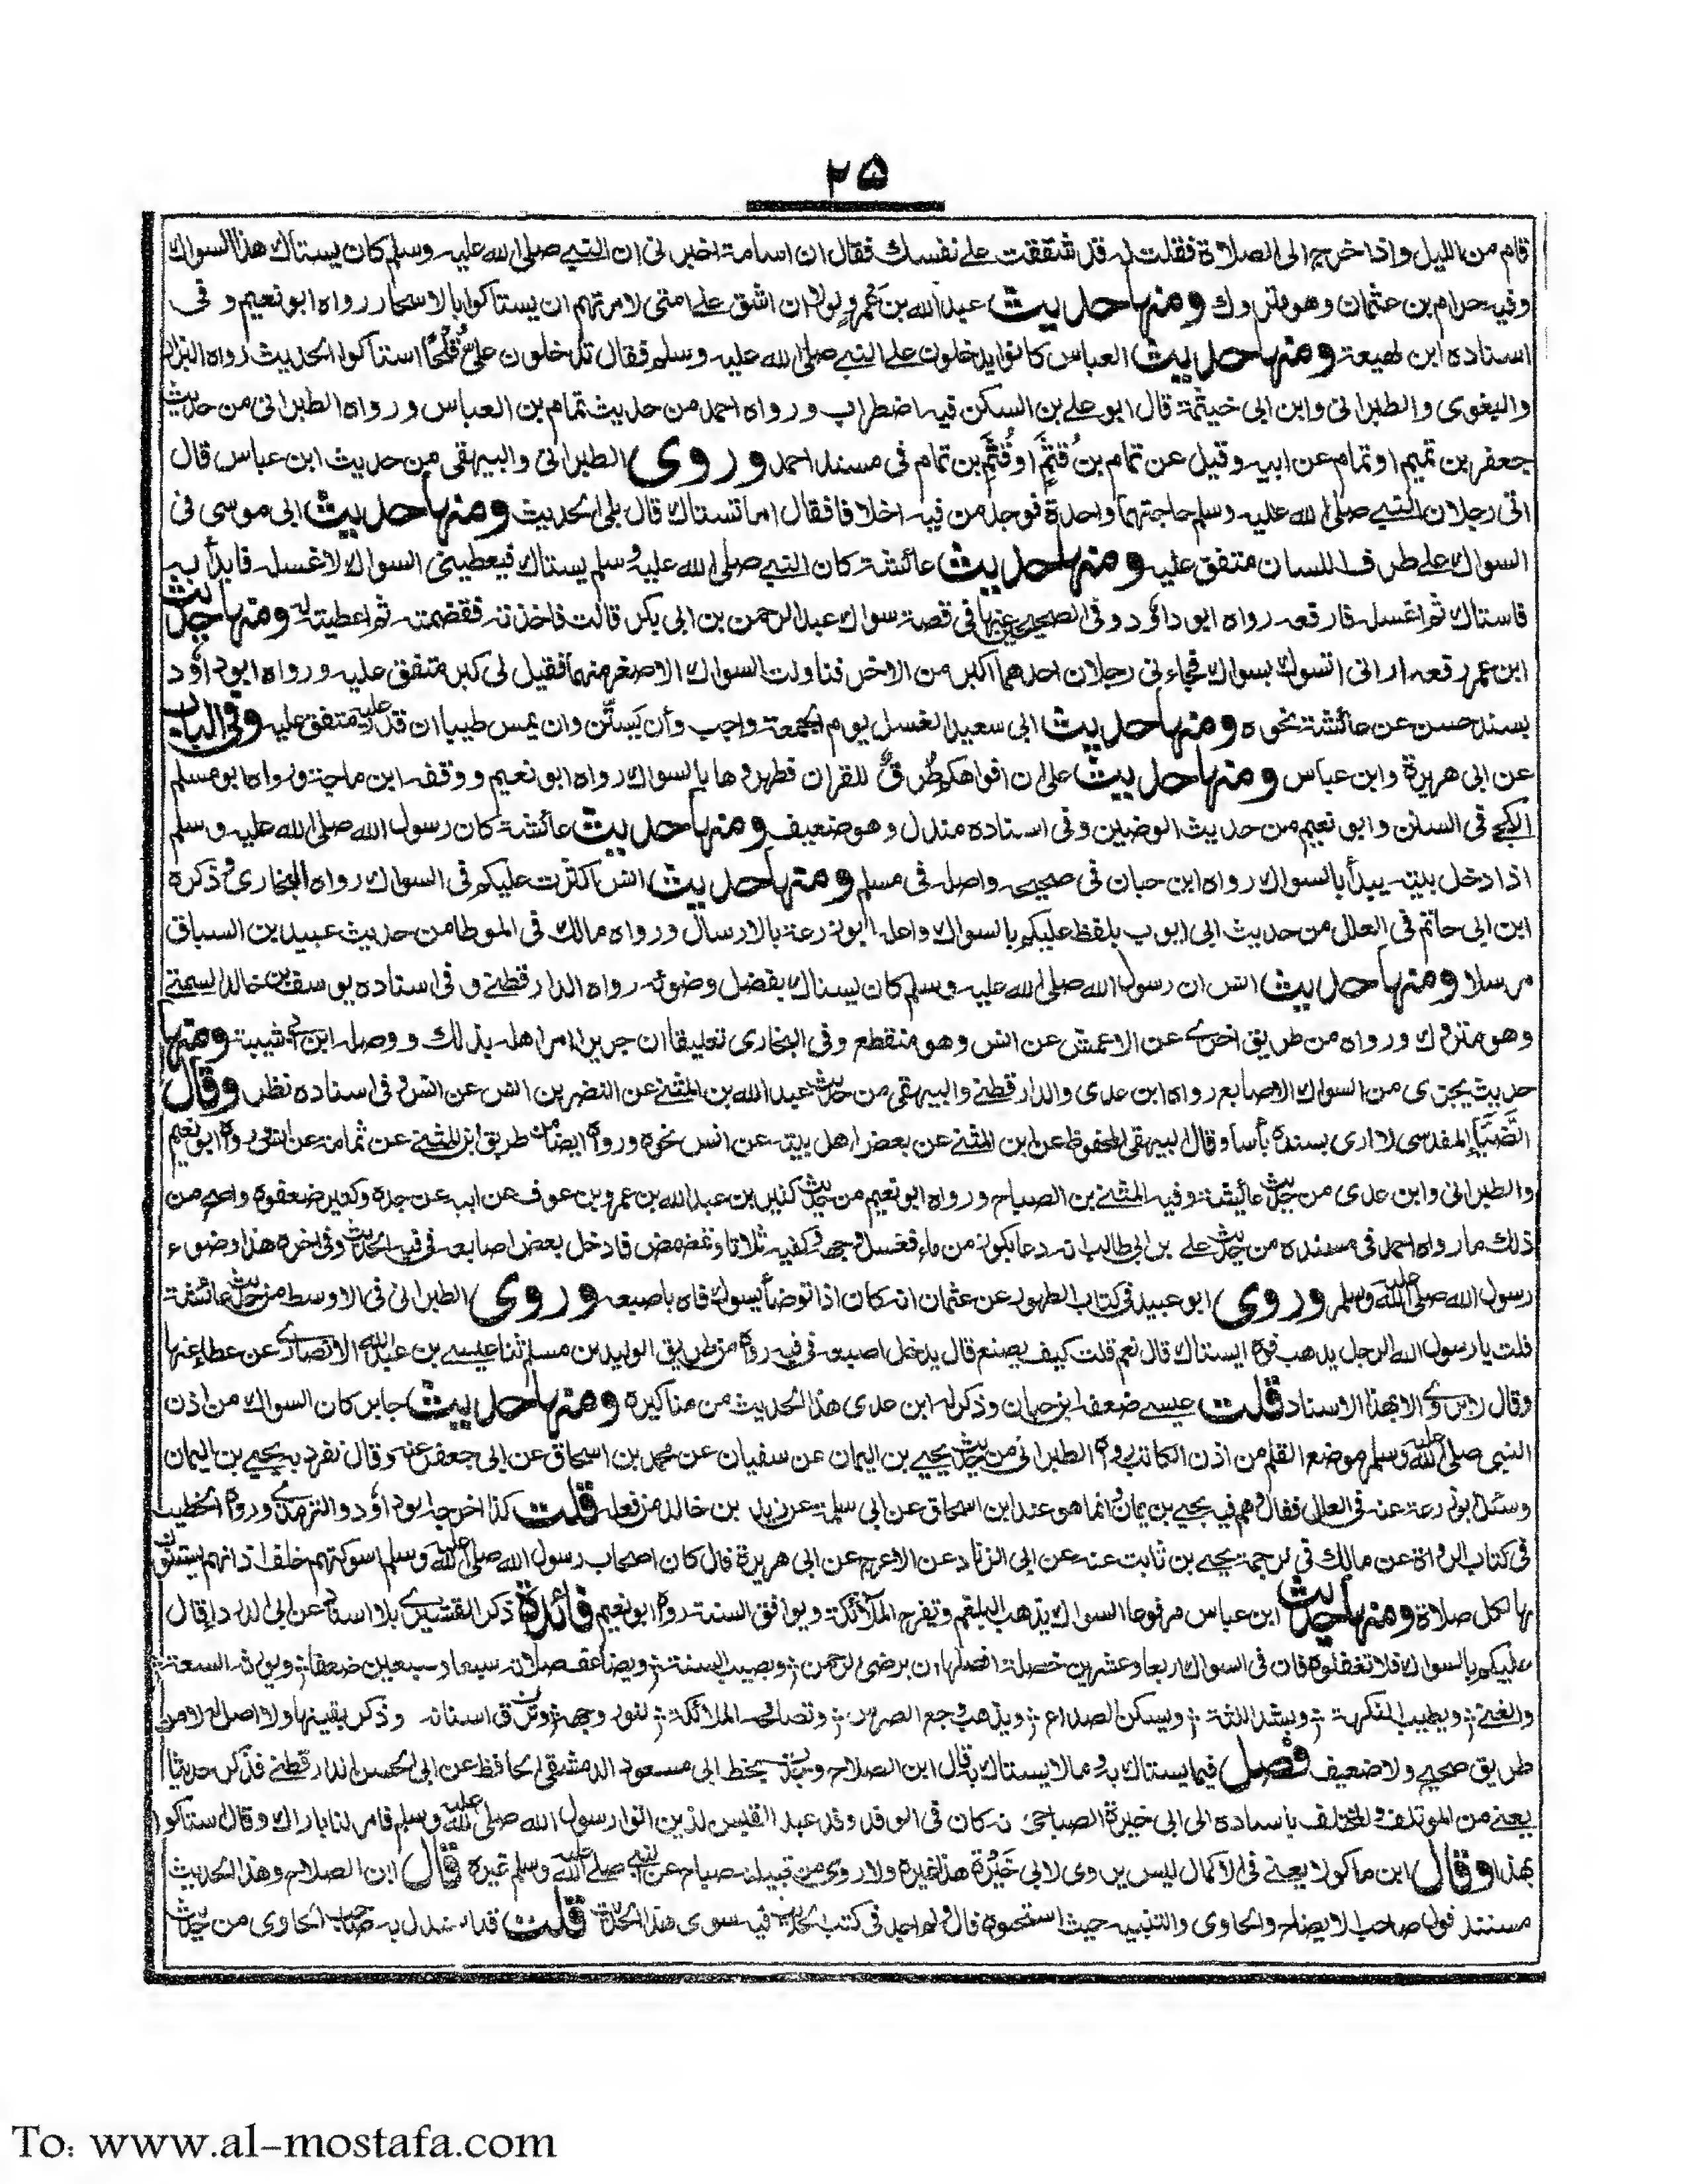 ٢٥
قام من الليل واذا خرج الى الصلاة فقلت له قد شققت على نفسك فقال ان اسامة اخبرنى ان النبى صلى الله عليه وسلم كان يستاك هذا السواك
وفيه حرام بن عثمان وهو متروك ومنها حديث عبد الله بن عمرو لولا ان اشق على امتى لامرتهم ان يستاكوا بالاسحار رواه ابو نعيم وفى
اسناده ابن لهيعة ومنها حديث العباس كانوا يدخلون على النبى صلى الله عليه وسلم فقال تدخلون علىّ قُلْحًا استاكوا الحديث رواه البزار
والبغوى والطبرانى وابن ابى خيثمة قال ابو على بن السكن فيه اضطراب ورواه احمد من حديث تمام بن العباس ورواه الطبرانى من حديث
جعفر بن تميم او تمام عن ابيه وقيل عن تمام بن قُثَم او قُثَم بن تمام فى مسند احمد وروى الطبرانى والبيهقى من حديث ابن عباس قال
اتى رجلان النبى صلى الله عليه وسلم حاجتهما واحدة فوجد من فيه اخلافا فقال اما تستاك قال بلى الحديث ومنها حديث ابى موسى فى
السواك على طرف اللسان متفق عليه ومنها حديث عائشة كان النبى صلى الله عليه وسلم يستاك فيعطينى السواك لاغسله فابدأ به
فاستاك ثم اغسله فارفعه رواه ابو داؤد وفى الصحيحين عنها فى قصة سواك عبد الرحمن بن ابى بكر قالت فاخذته فقضمته ثم اعطيته له ومنها حديث
ابن عمر رفعه ارانى اتسوك بسواك فجاءنى رجلان احدهما اكبر من الاخر فناولت السواك الاصغر منهما فقيل لى كبر متفق عليه ورواه ابو داؤد
بسند حسن عن عائشة نحوه ومنها حديث ابى سعيد الغسل يوم الجمعة واجب وأن يَستنّ وان يمس طيبا ان قدر عليه متفق عليه وفى الباب
عن ابى هريرة وابن عباس ومنها حديث على ان افواهكم طُرُقٌ للقران فطهروها بالسواك رواه ابو نعيم ووقفه ابن ماجة ورواه ابو مسلم
الكجى فى السنن وابو نعيم من حديث الوضين وفى اسناده مندل وهو ضعيف ومنها حديث عائشة كان رسول الله صلى الله عليه وسلم
اذا دخل بيته يبدأ بالسواك رواه ابن حبان فى صحيحه واصله فى مسلم ومنها حديث انس اكثرت عليكم فى السواك رواه البخارى وذكره
ابن ابى حاتم فى العلل من حديث ابى ايوب بلفظ عليكم بالسواك واعله ابو زرعة بالارسال ورواه مالك فى الموطا من حديث عبيد بن السباق
مرسلا ومنها حديث انس ان رسول الله صلى الله عليه وسلم كان يستاك بفضل وضوئه رواه الدارقطنى وفى اسناده يوسف بن خالد السمتى
وهو متروك ورواه من طريق اخرى عن الاعمش عن انس وهو منقطع وفى البخارى تعليقا ان جريرا امر اهله بذلك ووصله ابن ابى شيبة ومنها
حديث يجزى من السواك الاصابع رواه ابن عدى والدارقطنى والبيهقى من حديث عبد الله بن المثنى عن النضر بن انس عن انس وفى اسناده نظر وقال
الضياء المقدسى لا ارى بسنده بأسا وقال البيهقى المحفوظ عن ابن المثنى عن بعض اهل بيته عن انس نحوه ورواه ايضا من طريق ابن المثنى عن ثمامة عن انس ورواه ابو نعيم
والطبرانى وابن عدى من حديث عايشة وفيه المثنى بن الصباح ورواه ابو نعيم من حديث كثير بن عبد الله بن عمرو بن عوف عن ابيه عن جده وكثير ضعفوه واصح من
ذلك ما رواه احمد فى مسنده من حديث على بن ابى طالب انه دعا بكوز من ماء فغسل وجهه وكفيه ثلاثا وتمضمض فادخل بعض اصابعه فى فيه الحديث وفى اخره هذا وضوء
رسول الله صلى الله عليه وسلم وروى ابو عبيد فى كتاب الطهور عن عثمان انه كان اذا توضأ يسوك فاه باصبعه وروى الطبرانى فى الاوسط من حديث عائشة
قلت يا رسول الله الرجل يذهب فوه ايستاك قال نعم قلت كيف يصنع قال يدخل اصبعه فى فيه رواه من طريق الوليد بن مسلم ثنا عيسى بن عبد الله الانصارى عن عطاء عنها
وقال لا يروى الا بهذا الاسناد قلت عيسى ضعفه ابن حبان وذكر له ابن عدى هذا الحديث من مناكيره ومنها حديث جابر كان السواك من اذن
النبى صلى الله عليه وسلم موضع القلم من اذن الكاتب رواه الطبرانى من حديث يحيى بن اليمان عن سفيان عن محمد بن اسحاق عن ابى جعفر عنه وقال تفرد به يحيى بن اليمان
وسئل ابو زرعة عنه فى العلل فقال وهم فيه يحيى بن يمان انما هو عند ابن اسحاق عن ابى سلمة عن زيد بن خالد من فعله قلت كذا اخرجه ابو داؤد والترمذى ورواه الخطيب
فى كتاب الرواة عن مالك فى ترجمة يحيى بن ثابت عنه عن ابى الزناد عن الاعرج عن ابى هريرة قال كان اصحاب رسول الله صلى الله عليه وسلم اسوكتهم خلف اذانهم يستنون
بها لكل صلاة ومنها حديث ابن عباس مرفوعا السواك يذهب البلغم ويفرح الملائكة ويوافق السنة رواه ابو نعيم فائدة ذكر القشيرى بلا اسناد عن ابى الدرداء قال
عليكم بالسواك فلا تغفلوه فان فى السواك اربعا وعشرين خصلة افضلها ان يرضى الرحمن ويصيب السنة ويضاعف صلاته سبعا وسبعين ضعفا ويورثه السعة
والغنى ويطيب النكهة ويشد اللثة ويسكن الصداع ويذهب وجع الضرس وتصافحه الملائكة لنور وجهه وبرق اسنانه وذكر بقيتها ولا اصل له لا من
طريق صحيح ولا ضعيف فصل فيما يستاك به وما لا يستاك به قال ابن الصلاح وجدت بخط ابى مسعود الدمشقى الحافظ عن ابى الحسن الدارقطنى فذكر حديثا
يعنى من الموتلف والمختلف باسناده الى ابى خيرة الصباحى انه كان فى الوفد وفد عبد القيس الذين اتوا رسول الله صلى الله عليه وسلم فامر لنا باراك وقال استاكوا
بهذا وقال ابن ماكولا يعنى فى الاكمال ليس يروى لابى خَيْرَة هذا غيره ولا روى من قبيلة صباح عن النبى صلى الله عليه وسلم غيره قال ابن الصلاح وهذا الحديث
مستند قول صاحب الايضاح والحاوى والتنبيه حيث استحبوه قال ولم اجد فى كتب الحديث فيه سوى هذا الحديث قلت قد استدل به صاحب الحاوى من حديث
To: www.al-mostafa.com